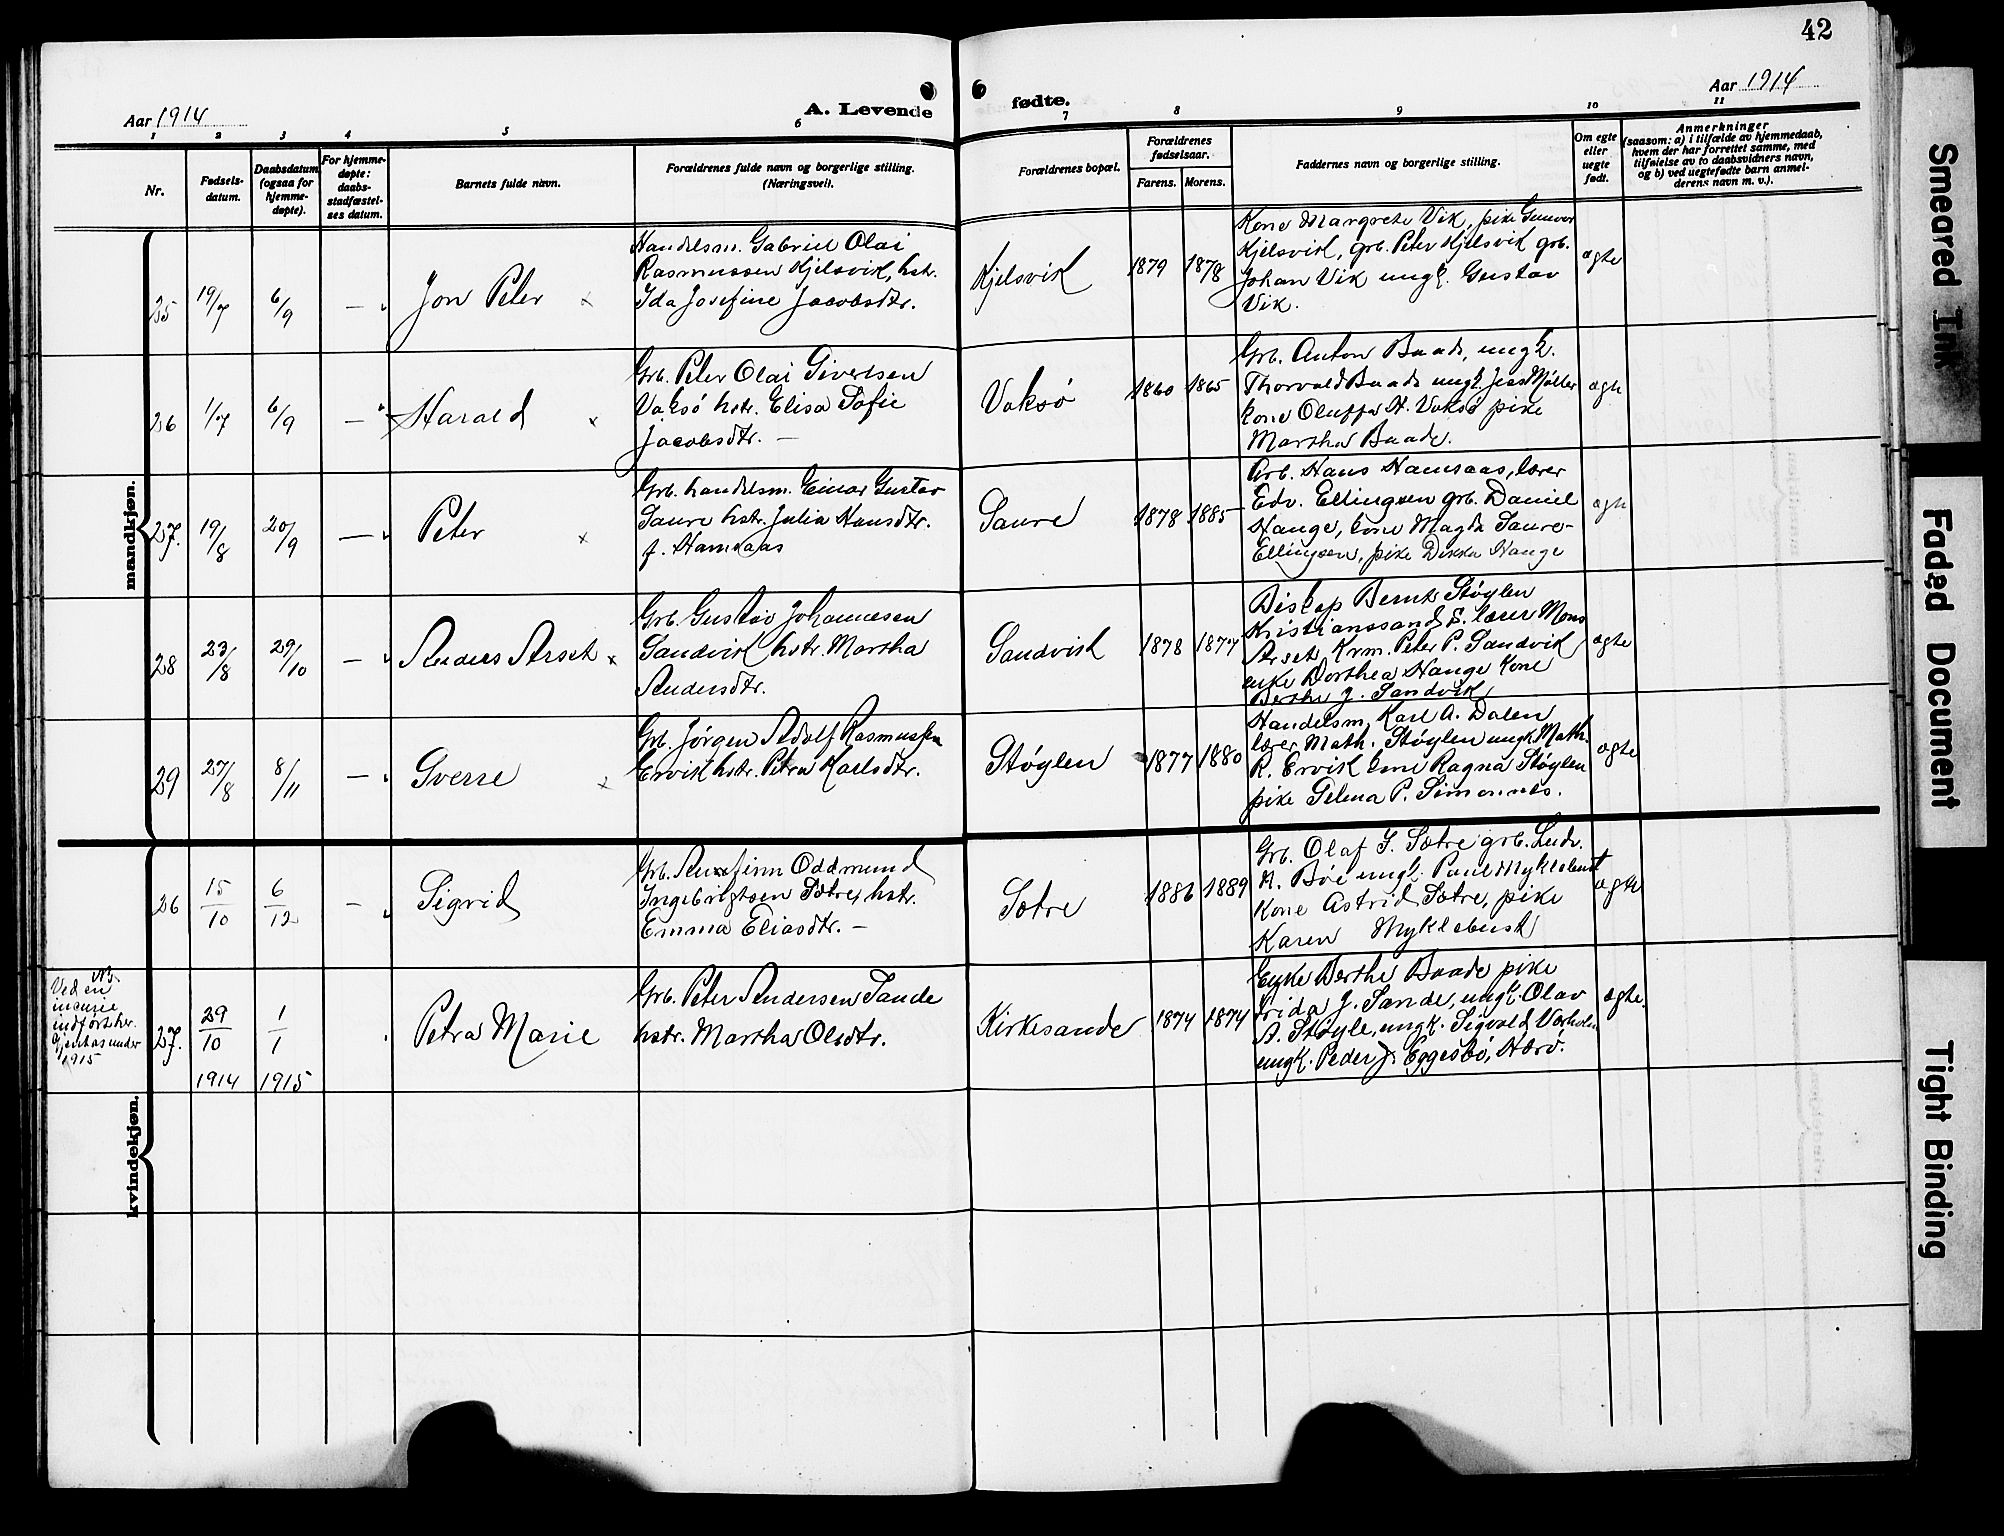 42
Aar 1914
A. Levende
fødte.
Aar 1914
1 2 3 4 5 6 7 8 9 10 11
Nr.
Fødsels-
datum.
Daabsdatum
(ogsaa for
hjemme-
døpte).
For hjemme-
døpte:
daabs-
stadfæstel-
ses datum.
Barnets fulde navn.
Forældrenes fulde navn og borgerlige stilling.
(Næringsvei).
Forældrenes bopæl.
Forældrenes
fødselsaar.
Farens. Morens.
Faddernes navn og borgerlige stilling.
Om egte
eller
uegte
født.
Anmerkninger
(saasom: a) i tilfælde av hjemmedaab,
hvem der har forrettet samme, med
tilføielse av to daabsvidners navn,
og b) ved uegtefødte barn anmel-
derens navn m. v.).
mandkjøn.
25 19/7 6/9 — Jon Peter x
Handelsm. Gabriel Olai
Rasmussen Kjelsvik, hstr.
Ida Josefine Jacobsdtr.
Kjelsvik 1879 1878
Kone Margrete Vik, pike Gunvor
Kjelsvik, grb. Peter Kjelsvik grb.
Johan Vik ungk. Gustav
Vik.
ægte
26 1/7 6/9 — Harald x
Grb. Peter Olai Sivertsen
Vaksø hstr. Elisa Sofie
Jacobsdtr. —
Vaksø 1860 1865
Grb. Anton Baade, ungk.
Thorvald Baade ungk. Jess Møller
kone Oluffa H. Vaksø pike
Martha Baade.
ægte
27. 19/8 20/9 — Peter x
Grb. handelsm. Einar Gustav
Saure hstr. Julia Hansdtr.
f. Hamsaas
Saure 1878 1885
Grb. Hans Hamsaas, lærer
Edv. Ellingsen grb. Daniel
Hauge, kone Magda Saure-
Ellingsen, pike Dikka Hauge
ægte
28 23/8 29/10 — Anders Arset x
Grb. Gustav Johannesen
Sandvik hstr. Martha
Andersdtr.
Sandvik 1878 1877
Biskop Bernt Støylen
Kristianssand S. lærer Mons
Arset Krm. Peter P. Sandvik
enke Dorthea Hauge Kone
Berthe J. Sandvik
ægte
29 27/8 8/11 — Sverre x
Grb. Jørgen Adolf Rasmussen
Ervik hstr. Petra Karlsdtr.
Støylen 1877 1880
Handelsm. Karl A. Dalen
lærer Math. Støylen ungk. Math.
R. Ervik kone Ragna Støylen
pike Selma P. Simonnes.
ægte
kvindekjøn.
26 15/10 6/12 — Sigrid
Grb. Arnfinn Oddmund
Ingebrigtsen Sætre, hstr.
Emma Eliasdtr. —
Sætre 1886 1889
Grb. Olaf I. Sætre grb. Ludv.
A. Bøe ungk. Paul Myklebust
Kone Astrid Sætre, pike
Karen Myklebust
ægte
NB.
Ved en
incurie
indført her.
Gjentas under
1915
27. 29/10 1914 1/1 1915 Petra Marie
Grb. Peter Andersen Sande
hstr. Martha Olsdtr.
Kirkesande 1874 1874
Enke Berthe Baade pike
Frida J. Sande, ungk. Olav
A. Støyle, ungk. Sigvald Vorholm
ungk. Peder J. Eggesbø, Herø.
ægte.
Smeared Ink
Faded Document
Tight Binding